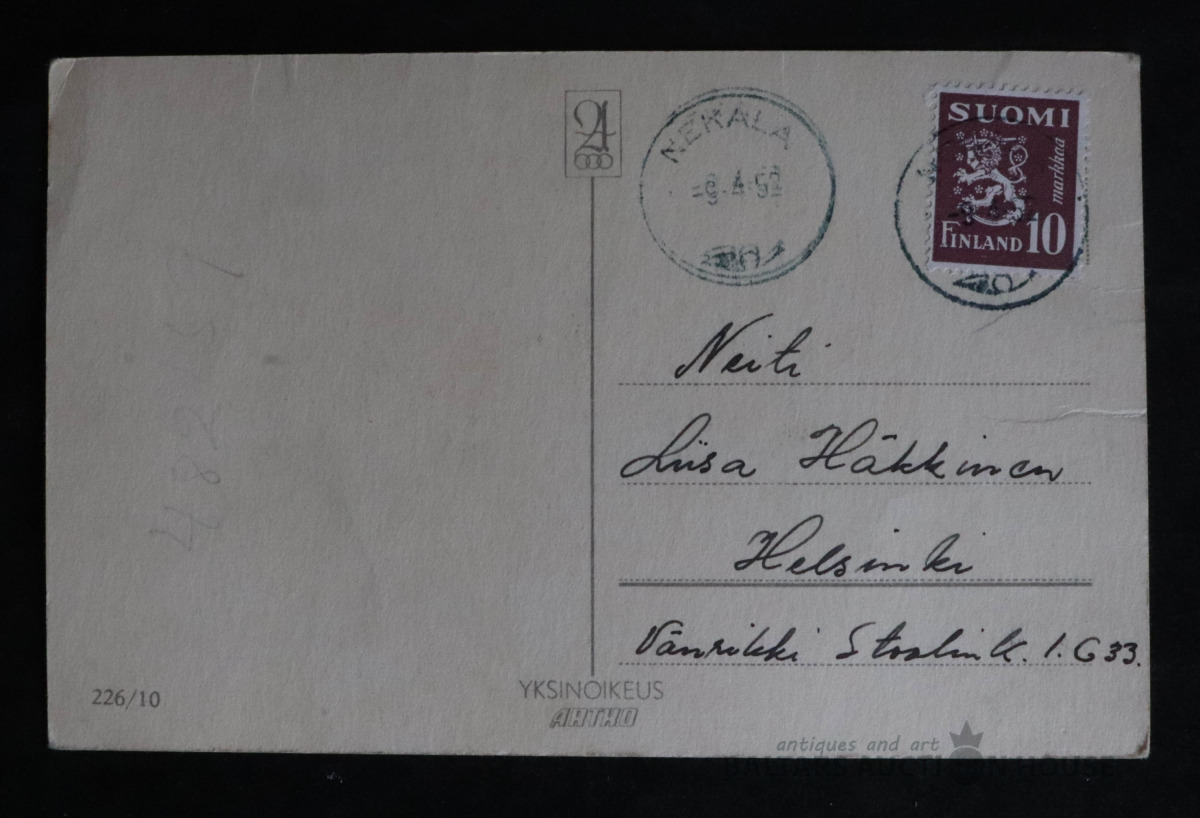 NEKALA
SUOMI
markkaa
FINLAND 10
Neiti
Liisa Häkkinen
Helsinki
Vänrikki Stoolin k. 1. G 33.
226/10
YKSINOIKEUS
ARTKO
antiques and art
BALTARS AUCTION HOUSE